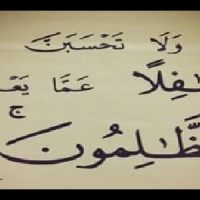 وَلَا تَحْسَبَنَّ
ـٰفِلًا عَمَّا يَعْـ
ـظَّـٰلِمُونَ ۚ